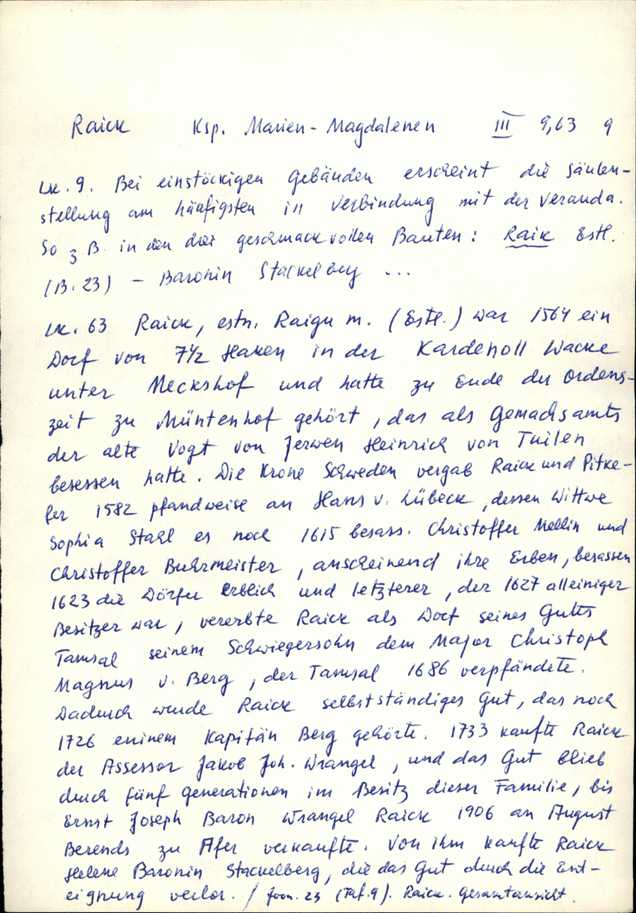 Raick Ksp. Marien-Magdalenen III 9,63 9
Lk. 9. Bei einstöckigen Gebäuden erscheint die Säulen-
stellung am häufigsten in Verbindung mit der Veranda.
So z B. in den drei geschmackvollen Bauten: Raik Estl.
(B. 23) - Baronin Stackelberg ...
Lk. 63 Raick, estn. Raigu m. (Estl.) war 1564 ein
Dorf von 7 1/2 Haken in der Kardenoll Wacke
unter Meckshof und hatte zu Ende der Ordens-
zeit zu Müntenhof gehört, das als Gemachsamts
der alte Vogt von Jerwen Heinrich von Tuilen
besessen hatte. Die Krone Schweden vergab Raick und Pitke-
fer 1582 pfandweise an Hans v. Lübeck, dessen Wittwe
Sophia Stahl es noch 1615 besass. Christoffer Mellin und
Christoffer Buhrmeister, anscheinend ihre Erben, besassen
1623 die Dörfer erblich und letzterer, der 1627 alleiniger
Besitzer war, vererbte Raick als Dorf seines Gutes
Tamsal seinem Schwiegersohn dem Major Christoph
Magnus v. Berg, der Tamsal 1686 verpfändete.
Dadurch wurde Raick selbstständiges Gut, das noch
1726 eninem Kapitän Berg gehörte. 1733 kaufte Raick
der Assessor Jakob Joh. Wrangel, und das Gut blieb
durch fünf Generationen im Besitz dieser Familie, bis
Ernst Joseph Baron Wrangel Raick 1906 an August
Berends zu Afer verkaufte. Von ihm kaufte Raick
Helene Baronin Stackelberg, die das Gut durch die Ent-
eignung verlor. / 23 (Taf. 9). Raick. Gesamtansicht.